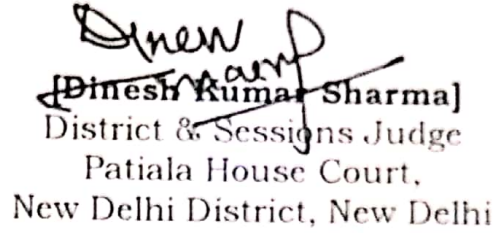 Dinesh
[Dinesh Kumar Sharma]
District & Sessions Judge
Patiala House Court,
New Delhi District, New Delhi